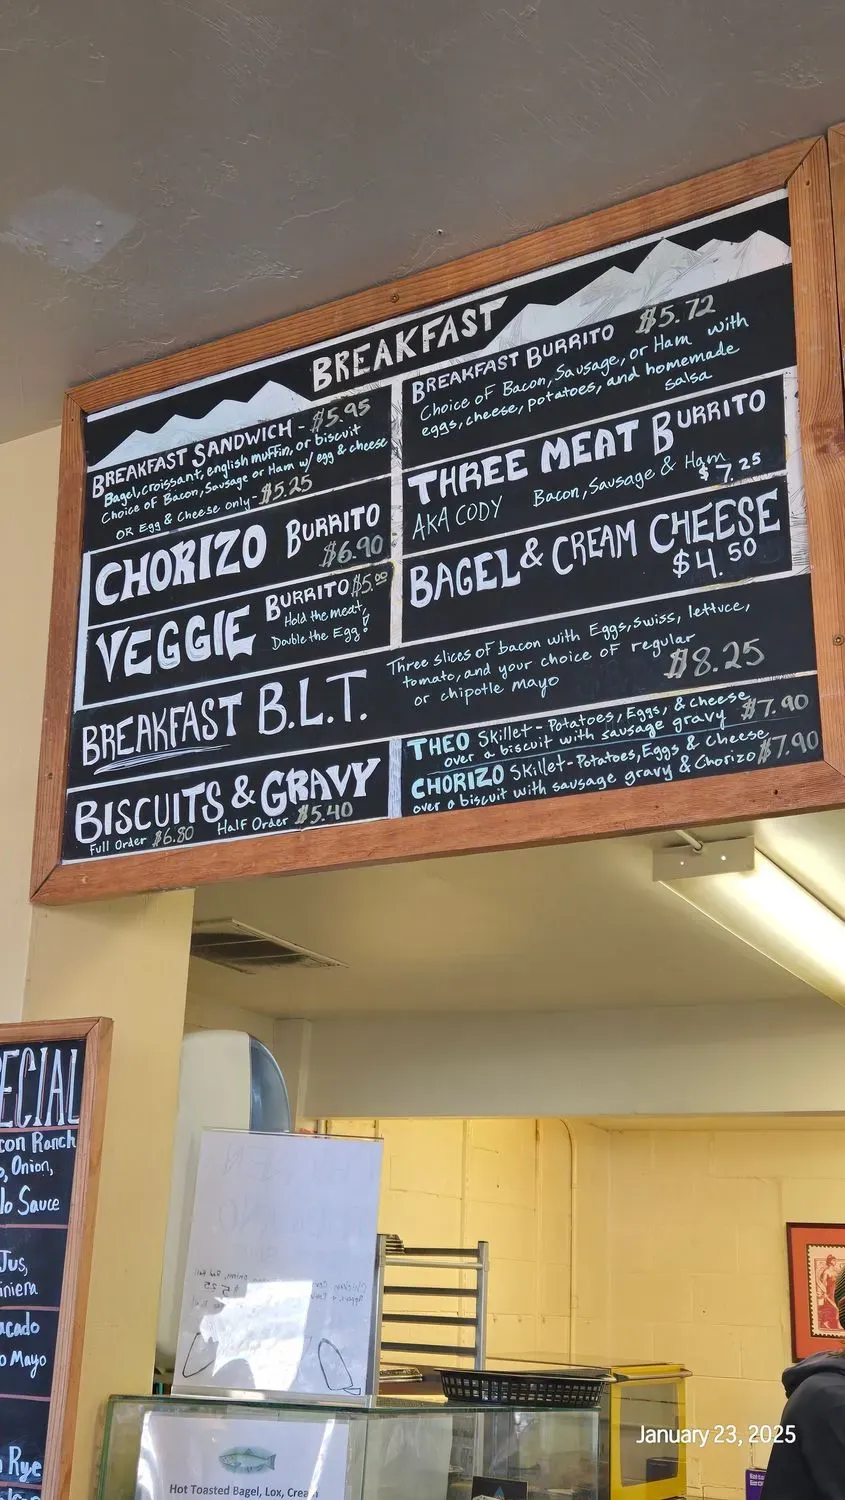 BREAKFAST
BREAKFAST SANDWICH - $5.95
Bagel, croissant, english muffin, or biscuit
Choice of Bacon, Sausage or Ham w/ egg & cheese
OR Egg & Cheese only - $5.25
CHORIZO BURRITO
$6.90
VEGGIE BURRITO $5.00
Hold the meat,
Double the Egg!
BREAKFAST BURRITO $5.72
Choice of Bacon, Sausage, or Ham with
eggs, cheese, potatoes, and homemade
salsa
THREE MEAT BURRITO
AKA CODY Bacon, Sausage & Ham
$7.25
BAGEL & CREAM CHEESE
$4.50
BREAKFAST B.L.T.
Three slices of bacon with Eggs, swiss, lettuce,
tomato, and your choice of regular
or chipotle mayo
$8.25
BISCUITS & GRAVY
Full Order $6.80 Half Order $5.40
THEO Skillet - Potatoes, Eggs, & cheese
over a biscuit with sausage gravy $7.90
CHORIZO Skillet - Potatoes, Eggs & Cheese,
over a biscuit with sausage gravy & Chorizo $7.90
ECIAL
con Ranch
o, Onion,
lo Sauce
Jus,
iniera
acado
o Mayo
Rye
Hot Toasted Bagel, Lox, Cream
January 23, 2025